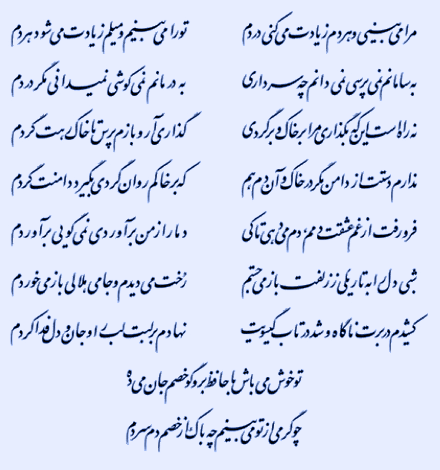 مرا می بینی و هر دم زیادت می کنی دردم تو را می بینم و میلم زیادت می شود هر دم
به سامانم نمی پرسی نمی دانم چه سر داری به درمانم نمی کوشی نمیدانی مگر دردم
نه راه است این که بگذاری مرا بر خاک و برگردی گذاری آر و بازم پرس تا خاک رهت گردم
ندارم دستت از دامن مگر در خاک و آن دم هم که بر خاکم روان گردی بگیرد دامنت گردم
فرو رفت از غم عشقت دمم دم می دهی تا کی دمار از من برآوردی نمی گویی برآوردم
شبی دل را به تاریکی ز زلفت باز می جستم رخت می دیدم و جامی هلالی باز می خوردم
کشیدم در برت ناگاه و شد در تاب گیسویت نهادم بر لبت لب را و جان و دل فدا کردم
تو خوش می باش با حافظ برو گو خصم جان می ده
چو گرمی از تو می بینم چه باک از خصم دم سردم